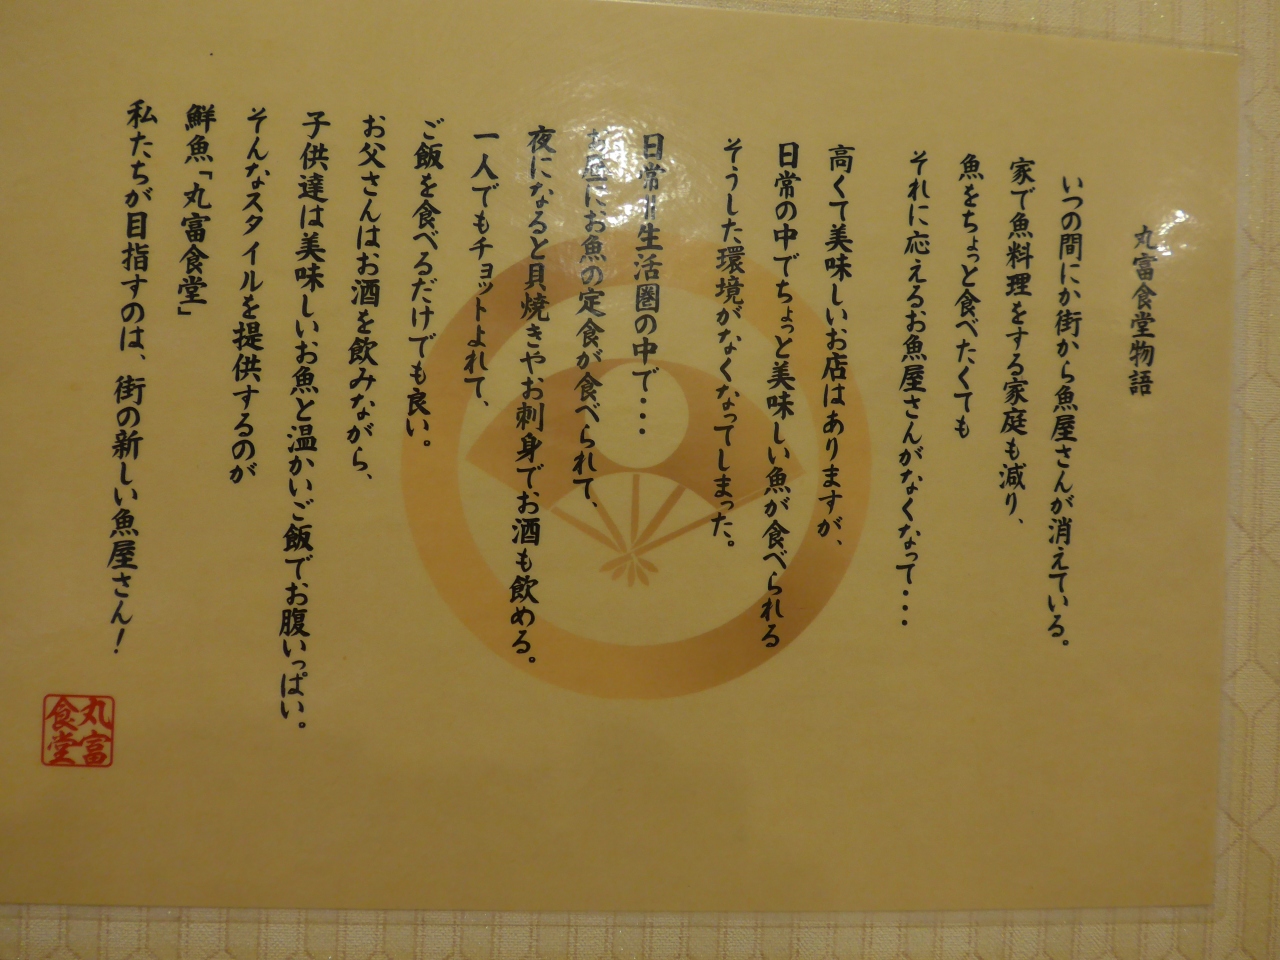 丸富食堂物語
いつの間にか街から魚屋さんが消えている。
家で魚料理をする家庭も減り、
魚をちょっと食べたくても
それに応えるお魚屋さんがなくなって・・・
高くて美味しいお店はありますが、
日常の中でちょっと美味しい魚が食べられる
そうした環境がなくなってしまった。
日常=生活圏の中で・・・
お昼にお魚の定食が食べられて、
夜になると貝焼きやお刺身でお酒も飲める。
一人でもチョットよれて、
ご飯を食べるだけでも良い。
お父さんはお酒を飲みながら、
子供達は美味しいお魚と温かいご飯でお腹いっぱい。
そんなスタイルを提供するのが
鮮魚「丸富食堂」
私たちが目指すのは、街の新しい魚屋さん!
丸富
食堂